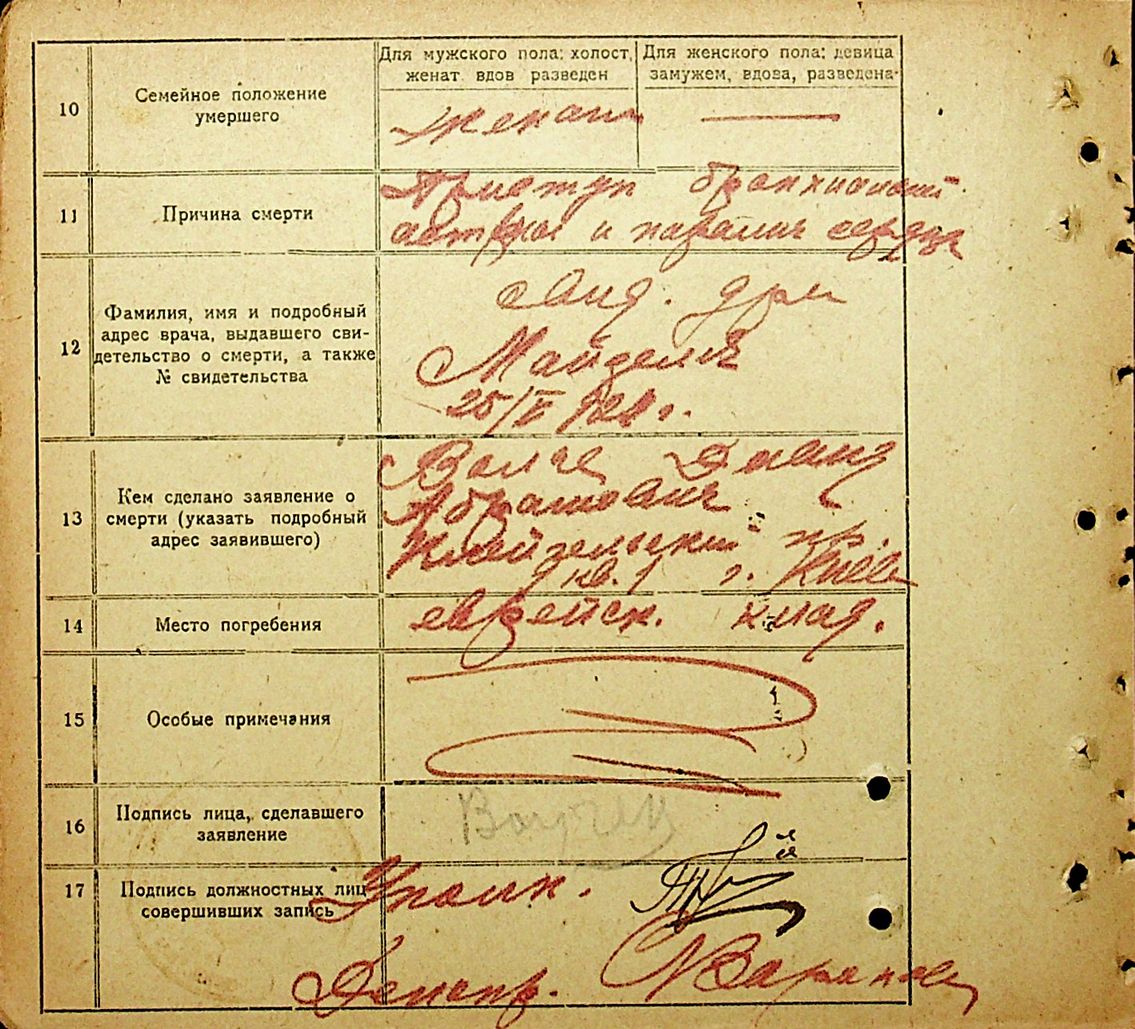 Для мужского пола: холост, женат вдов разведен
Для женского пола: девица замужем, вдова, разведена
10
Семейное положение
умершего
женат
—
11
Причина смерти
Приступ бронхиальной
астмы и паралич сердца
12
Фамилия, имя и подробный
адрес врача, выдавшего сви-
детельство о смерти, а также
№ свидетельства
Свид. д-ра
25/
13
Кем сделано заявление о
смерти (указать подробный
адрес заявившего)
Давид
Абрамович
кв. 1 г.
14
Место погребения
еврейск. клад.
15
Особые примечания
16
Подпись лица, сделавшего
заявление
17
Подпись должностных лиц
совершивших запись
Делопр.